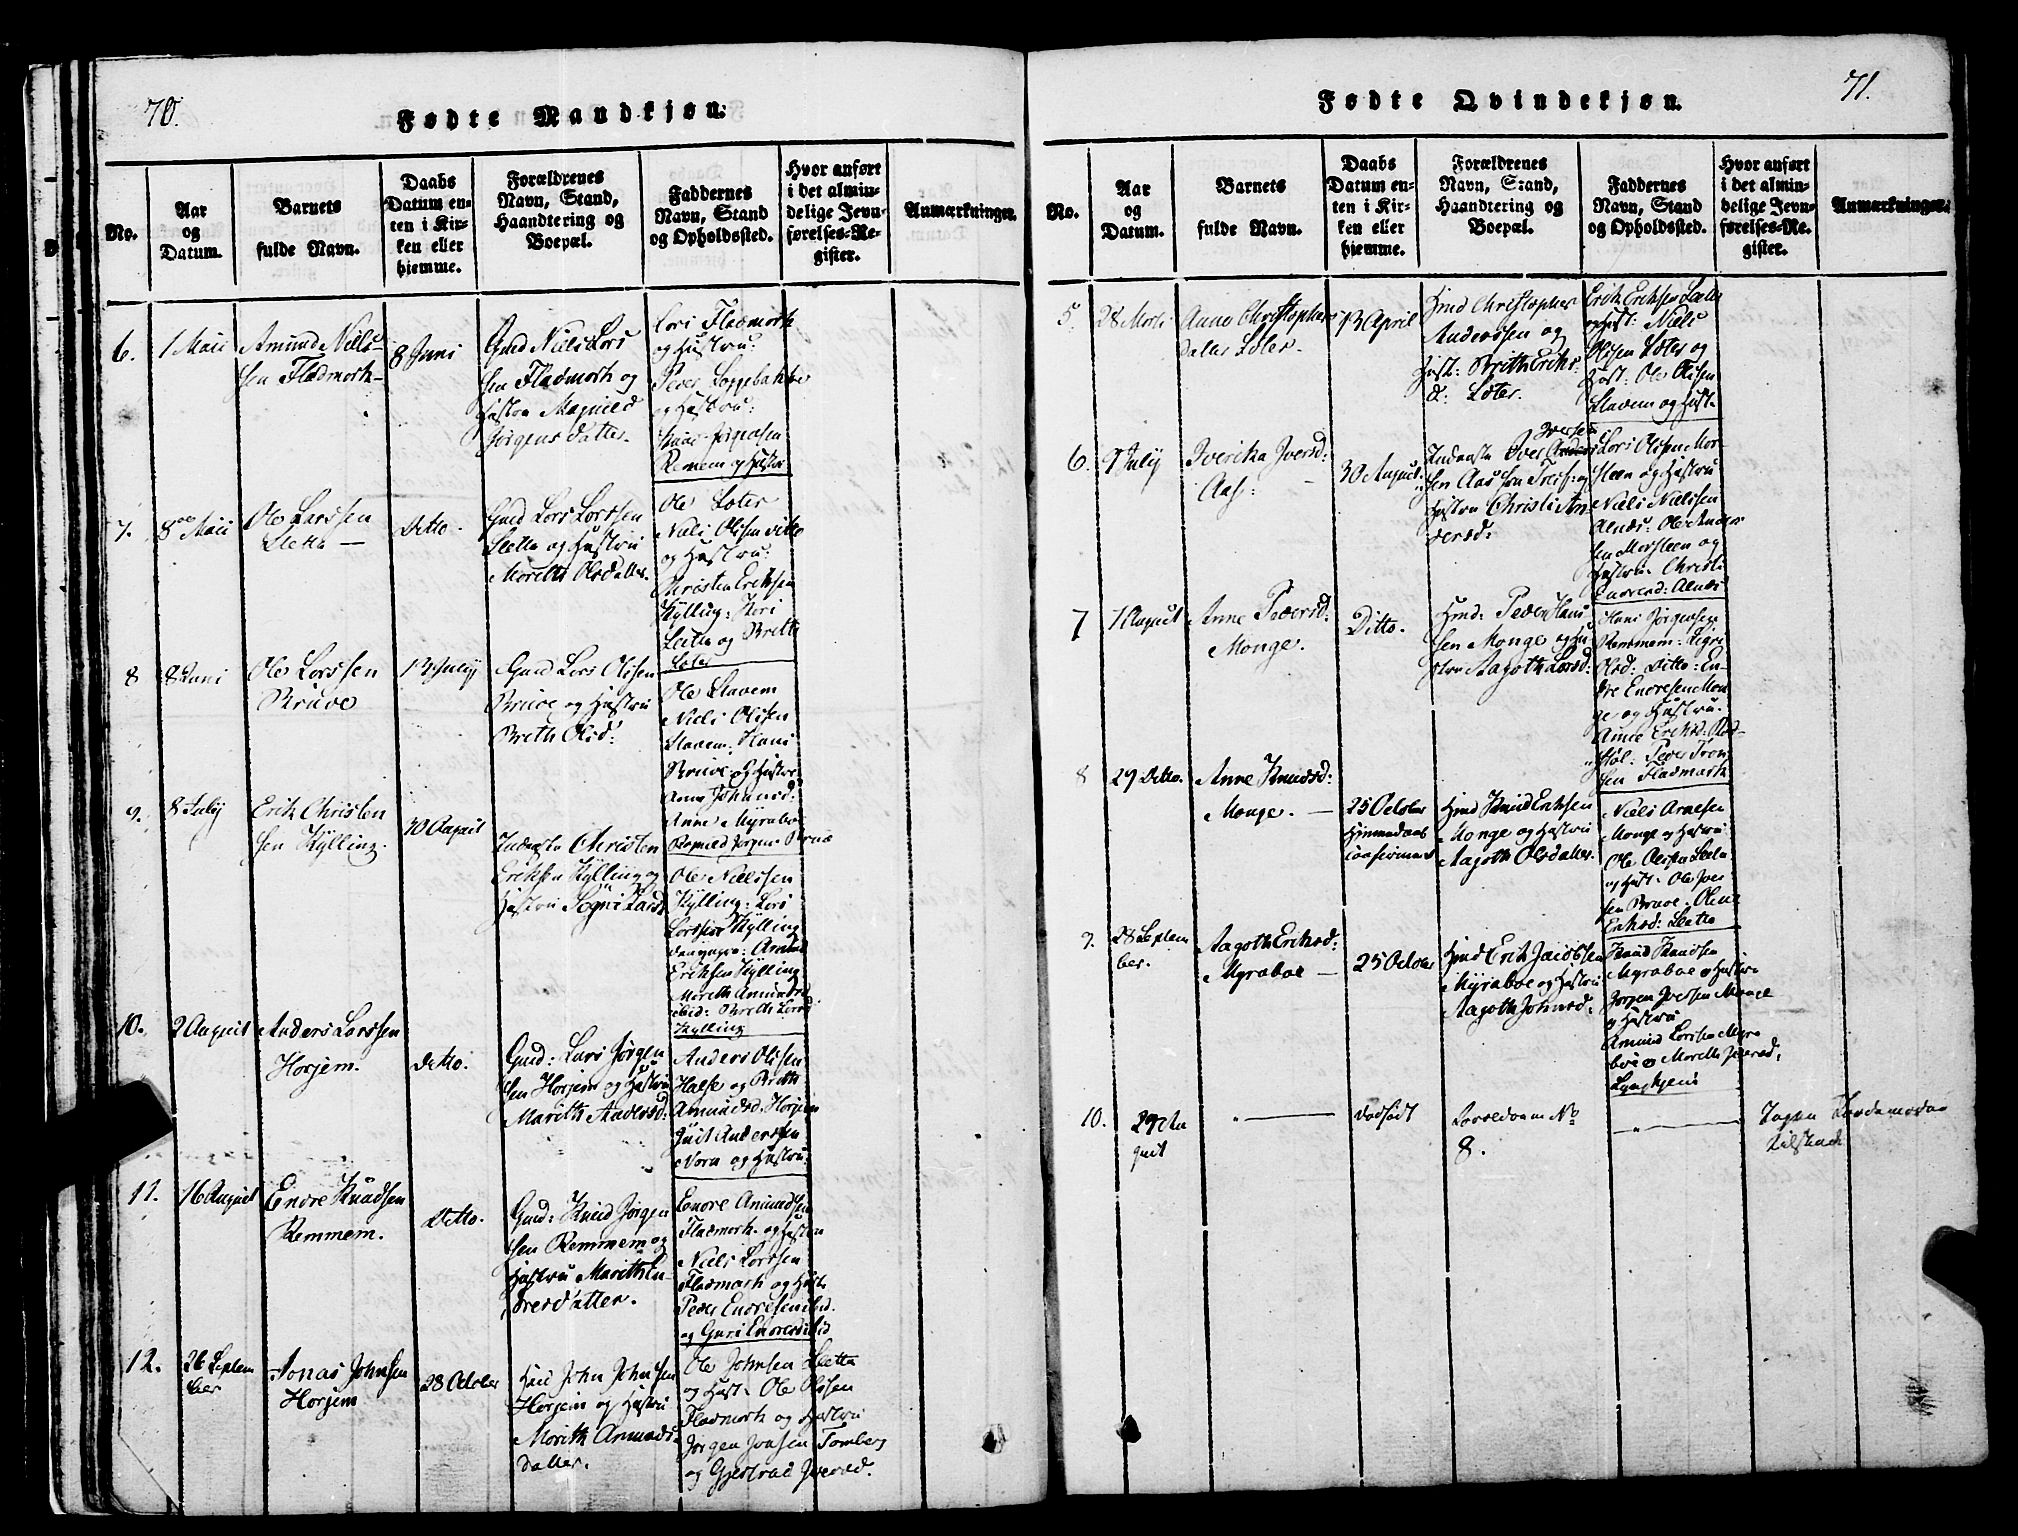 70.
Fødte Mandkjøn.
No.
Aar
og
Datum.
Barnets
fulde Navn.
Daabs
Datum en-
ten i Kir-
ken eller
hjemme.
Forældrenes
Navn, Stand,
Haandtering og
Boepæl.
Faddernes
Navn, Stand
og Opholdssted.
Hvor anført
i det almin-
delige Jevn-
førelses-Re-
gister.
Anmærkninger.
6.
1 Maii
Amund Niels-
sen Fladmark
8 Juni
Gmd Niels Lars
sen Fladmark og
Hustru Magnild
Jørgensdatter.
Lars Fladmark
og Hustru:
Peder
og Hustru:
Jørgensen
Remem og Hustru
7.
8de Maii
Ole Larssen
Sletta
Ditto.
Gmd Lars Larssen
Sletta og Hustru
Marith Olsdatter.
Ole
Niels Olssen ditto
og Hustru:
Christen Eriksen
Kylling: Kari
Sletta og Britt
8
8 Juni
Ole Larssen
Bruve
13 July
Gmd Lars Olssen
Bruve og Hustru
Breth Olsd:
Ole Slavem
Niels Olssen
Slavem: Hans
Bruve og Hustru
Anne Johansd:
Anne Myraboe
9.
8 July
Erik Christen
sen Kylling.
30 August
Inderste Christen
Eriksen Kylling og
Hustru
Ole Nielssen
Kylling: Lars
Larssen Kylling
den yngre: Amund
Eriksen Kylling
Marith Amundsd
ibid: Breth Larsd
Kylling
10.
2 August
Anders Larssen
Horjem.
ditto.
Gmd: Lars Jørgen
sen Horjem og Hustru
Marith Andersd:
Anders Olssen
Halse og Breth
Amundsd. Horjem
Anderssen
Norn og Hustru:
11.
16 August
Endre Knudsen
Remmem.
Ditto.
Gmd: Knud Jørgen
sen Remmem og
Hustru Marith En-
dresdatter.
Endre Amundsen
Fladmark og Hustru
Niels Larssen
Fladmark og Hustr
Peder Endresen ibid.
og Guri Endresd ibid
12.
26 Septem
ber
Jonas Johnsen
Horjem
28 October
John Johnsen
Horjem og Hustru
Marith Amunds-
datter.
Ole Johnsen Sletta
og Hust: Ole Olssen
Fladmark og Hustru
Jørgen Joensen Tomberg
og Gjertrud Iversd.
71.
Fødte Qvindekjøn.
No.
Aar
og
Datum.
Barnets
fulde Navn.
Daabs
Datum en-
ten i Kir-
ken eller
hjemme.
Forældrenes
Navn, Stand,
Haandtering og
Boepæl.
Faddernes
Navn, Stand
og Opholdssted.
Hvor anført
i det almin-
delige Jevn-
førelses-Re-
gister.
Anmærkninger.
5.
28 Marts
Anne Christophers
datter
13 April
Hmd Christopher
Anderssen og
Hust: Brith Eriks
d:
Erik Eriksen
og Hust: Niels
Olssen
Hust: Ole Olssen
Slavem og Hust.
6.
9 July
Iverika Iversd:
Aas:
30 August
Inderste Iver Iversen
sen Aas
Hustru Christi An
dersd:
Lars Olssen Mar-
steen og Hustru
Niels Nielssen
Alnæs: Ole Anders
sen Marsteen og
Hustru. Christi
Alnæs
7
1 August
Anne Pedersd:
Monge.
Ditto.
Hmd: Peder Hans
sen Monge og Hu-
stru Aagoth Larsd:
Hans Jørgensen
Remmem: Sigri
Olsd: Ditto: En-
dre Endresen Mon
ge og Hustru.
Anne Eriksd:
Peder
sen Fladmark
8
29 Ditto.
Anne Knudsd:
Monge.
25 October
Hjemmedøbt
confirmeret
Hmd Knud Eriksen
Monge og Hustru
Aagoth Olsdatter.
Niels Arnesen
Monge og Hustru
Ole Olssen Sletta
og Hust: Ole Iver
sen Bruve. Oline
Eriksd: Sletta
9.
28 Septem
ber.
Aagoth Eriksd:
Myraboe
25 October
Hmd Erik Jacobsen
Myraboe og Hustru
Aagoth Johnsd:
Knud Knudsen
Myraboe og Hustru
Jørgen Iversen Monge
og Hustru
Amund Larssen Myra
boe og Marith Iversd:
10.
29 Au
gust
dødfødt
Forældrene No
8.
Ingen Jordemoder
tilstæde